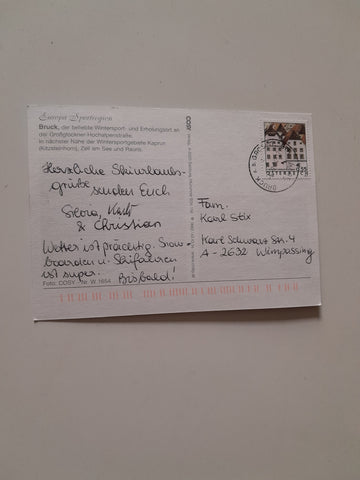 Europa Sportregion
Bruck, der beliebte Wintersport- und Erholungsort an
der Großglockner-Hochalpenstraße.
In nächster Nähe der Wintersportgebiete Kaprun
(Kitzsteinhorn), Zell am See und Rauris.
Herzliche Skiurlaubs-
grüße senden Euch
Silvia, Karli
& Christian
Wetter ist prächtig. Snow-
boarden u. Skifahren
ist super.
Bisbald!
Foto: COSY Nr. W 1654
COSY
ÖSTERREICH
BRUCK
Fam.
Karl Stix
Karl Schwarz Str. 4
A - 2632 Wimpassing